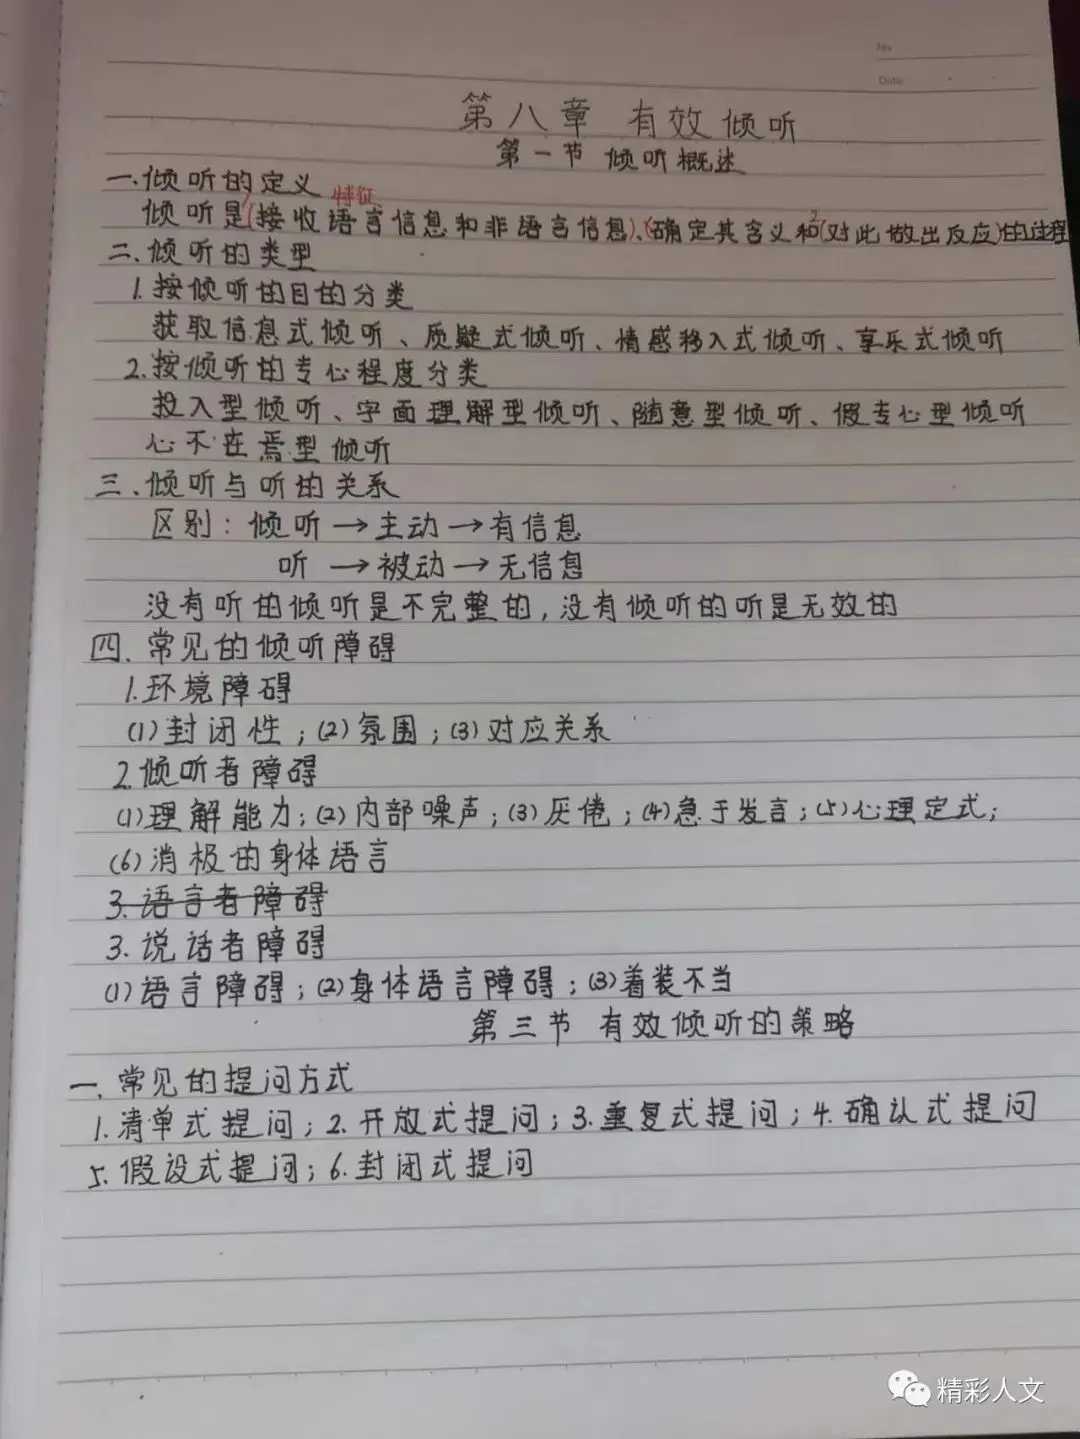 No
Date
第八章 有效倾听
第一节 倾听概述
一.倾听的定义
特征
倾听是(接收语言信息和非语言信息)、(确定其含义和(对此做出反应)的过程
二、倾听的类型
1.按倾听的目的分类
获取信息式倾听、质疑式倾听、情感移入式倾听、享乐式倾听
2.按倾听的专心程度分类
投入型倾听、字面理解型倾听、随意型倾听、假专心型倾听
心不在焉型倾听
三、倾听与听的关系
区别:倾听→主动→有信息
听→被动→无信息
没有听的倾听是不完整的,没有倾听的听是无效的
四.常见的倾听障碍
1.环境障碍
(1)封闭性;(2)氛围;(3)对应关系
2.倾听者障碍
(1)理解能力;(2)内部噪声;(3)厌倦;(4)急于发言;(5)心理定式;
(6)消极的身体语言
3.语言者障碍
3.说话者障碍
(1)语言障碍;(2)身体语言障碍;(3)着装不当
第三节 有效倾听的策略
一.常见的提问方式
1.清单式提问;2.开放式提问;3.重复式提问;4.确认式提问
5.假设式提问;6.封闭式提问
精彩人文